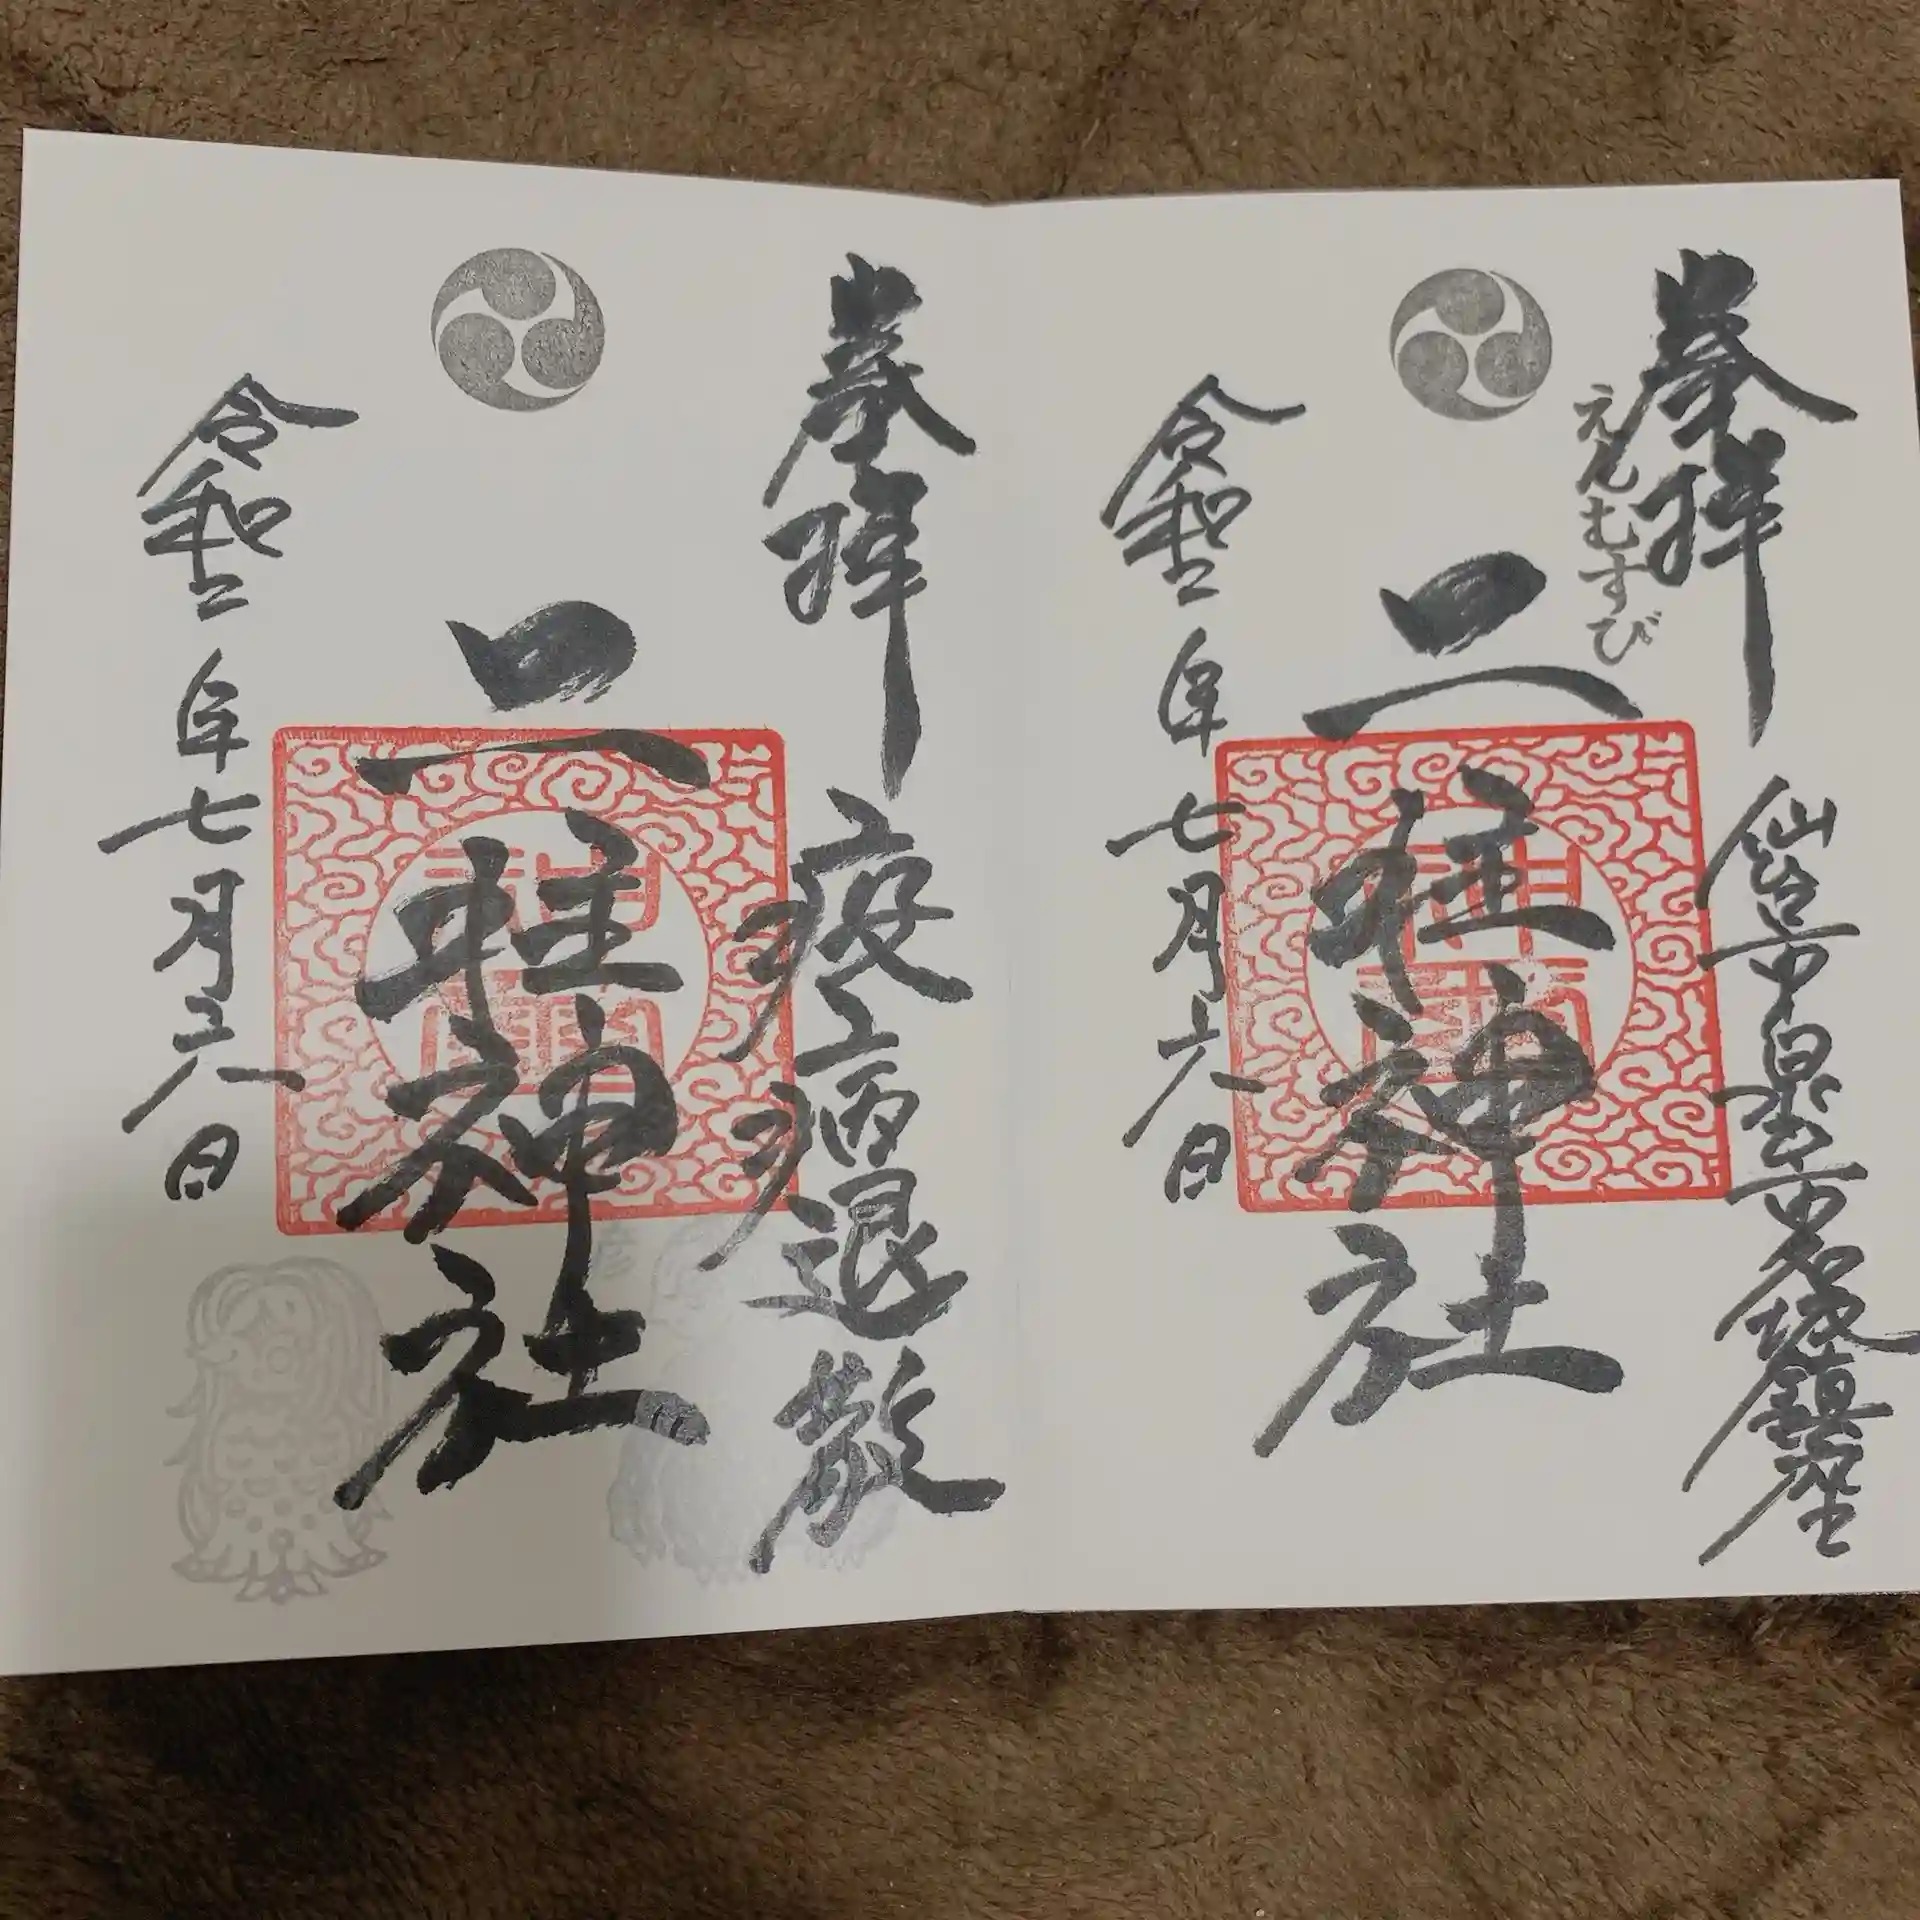 奉拝
仙台市泉区市名坂鎮座
えんむすび
二柱神社
令和二年七月六日
奉拝
疫病退散
二柱神社
令和二年七月六日